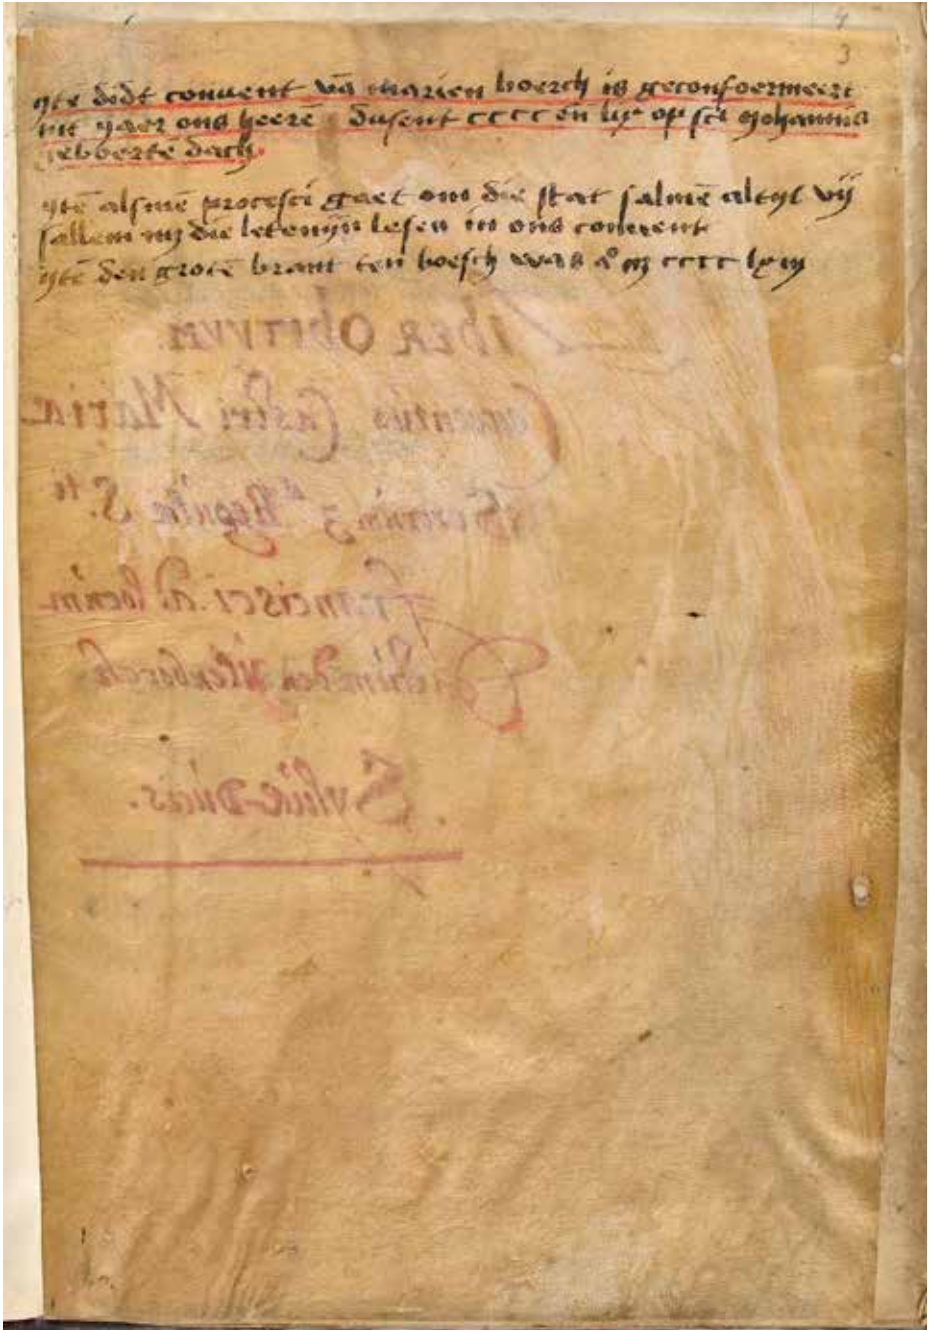 4
3
Jtē dedt conuent vā marien boerch is geconfoermeert
int yaer ons heerē dusent cccc en lix op sct Johannis
geboerte dach
Jtē alsmē processi gaet om die stat salmē altyt vij
sallem mz die letenijn lesen in ons conuent
Jtē den grotē brant ten boesch was aº m cccc lxiij
Liber Obituum
Conuentus Castri Mariæ
Sororum 3ᵃ Regulæ S.ti
Francisci
Syluæ-Ducis.